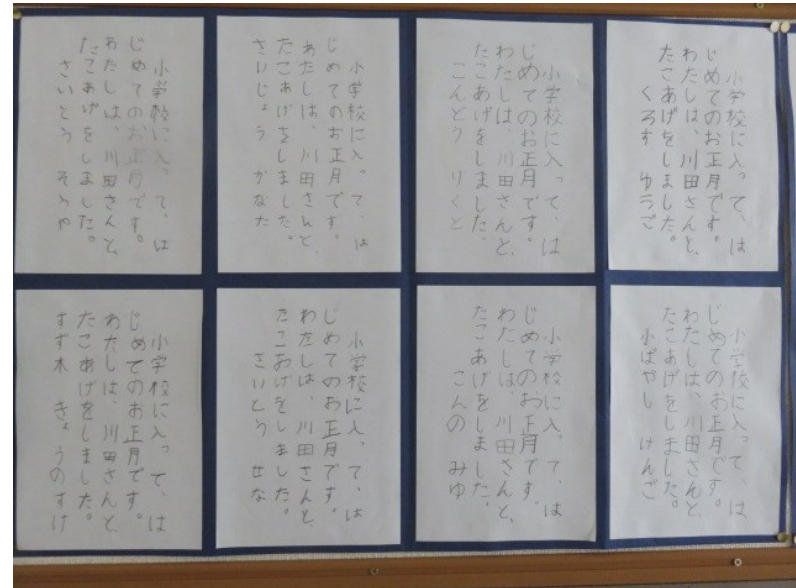 小学校に入って、は
じめてのお正月です。
わたしは、川田さんと、
たこあげをしました。
くろす ゆうご
小学校に入って、は
じめてのお正月です。
わたしは、川田さんと、
たこあげをしました。
こんどう りくと
小学校に入って、は
じめてのお正月です。
わたしは、川田さんと、
たこあげをしました。
さいじょう かなた
小学校に入って、は
じめてのお正月です。
わたしは、川田さんと、
たこあげをしました。
さいとう そうや
小学校に入って、は
じめてのお正月です。
わたしは、川田さんと、
たこあげをしました。
小ばやし けんご
小学校に入って、は
じめてのお正月です。
わたしは、川田さんと、
たこあげをしました。
こんの みゆ
小学校に入って、は
じめてのお正月です。
わたしは、川田さんと、
たこあげをしました。
さいとう せな
小学校に入って、は
じめてのお正月です。
わたしは、川田さんと、
たこあげをしました。
すず木 きょうのすけ